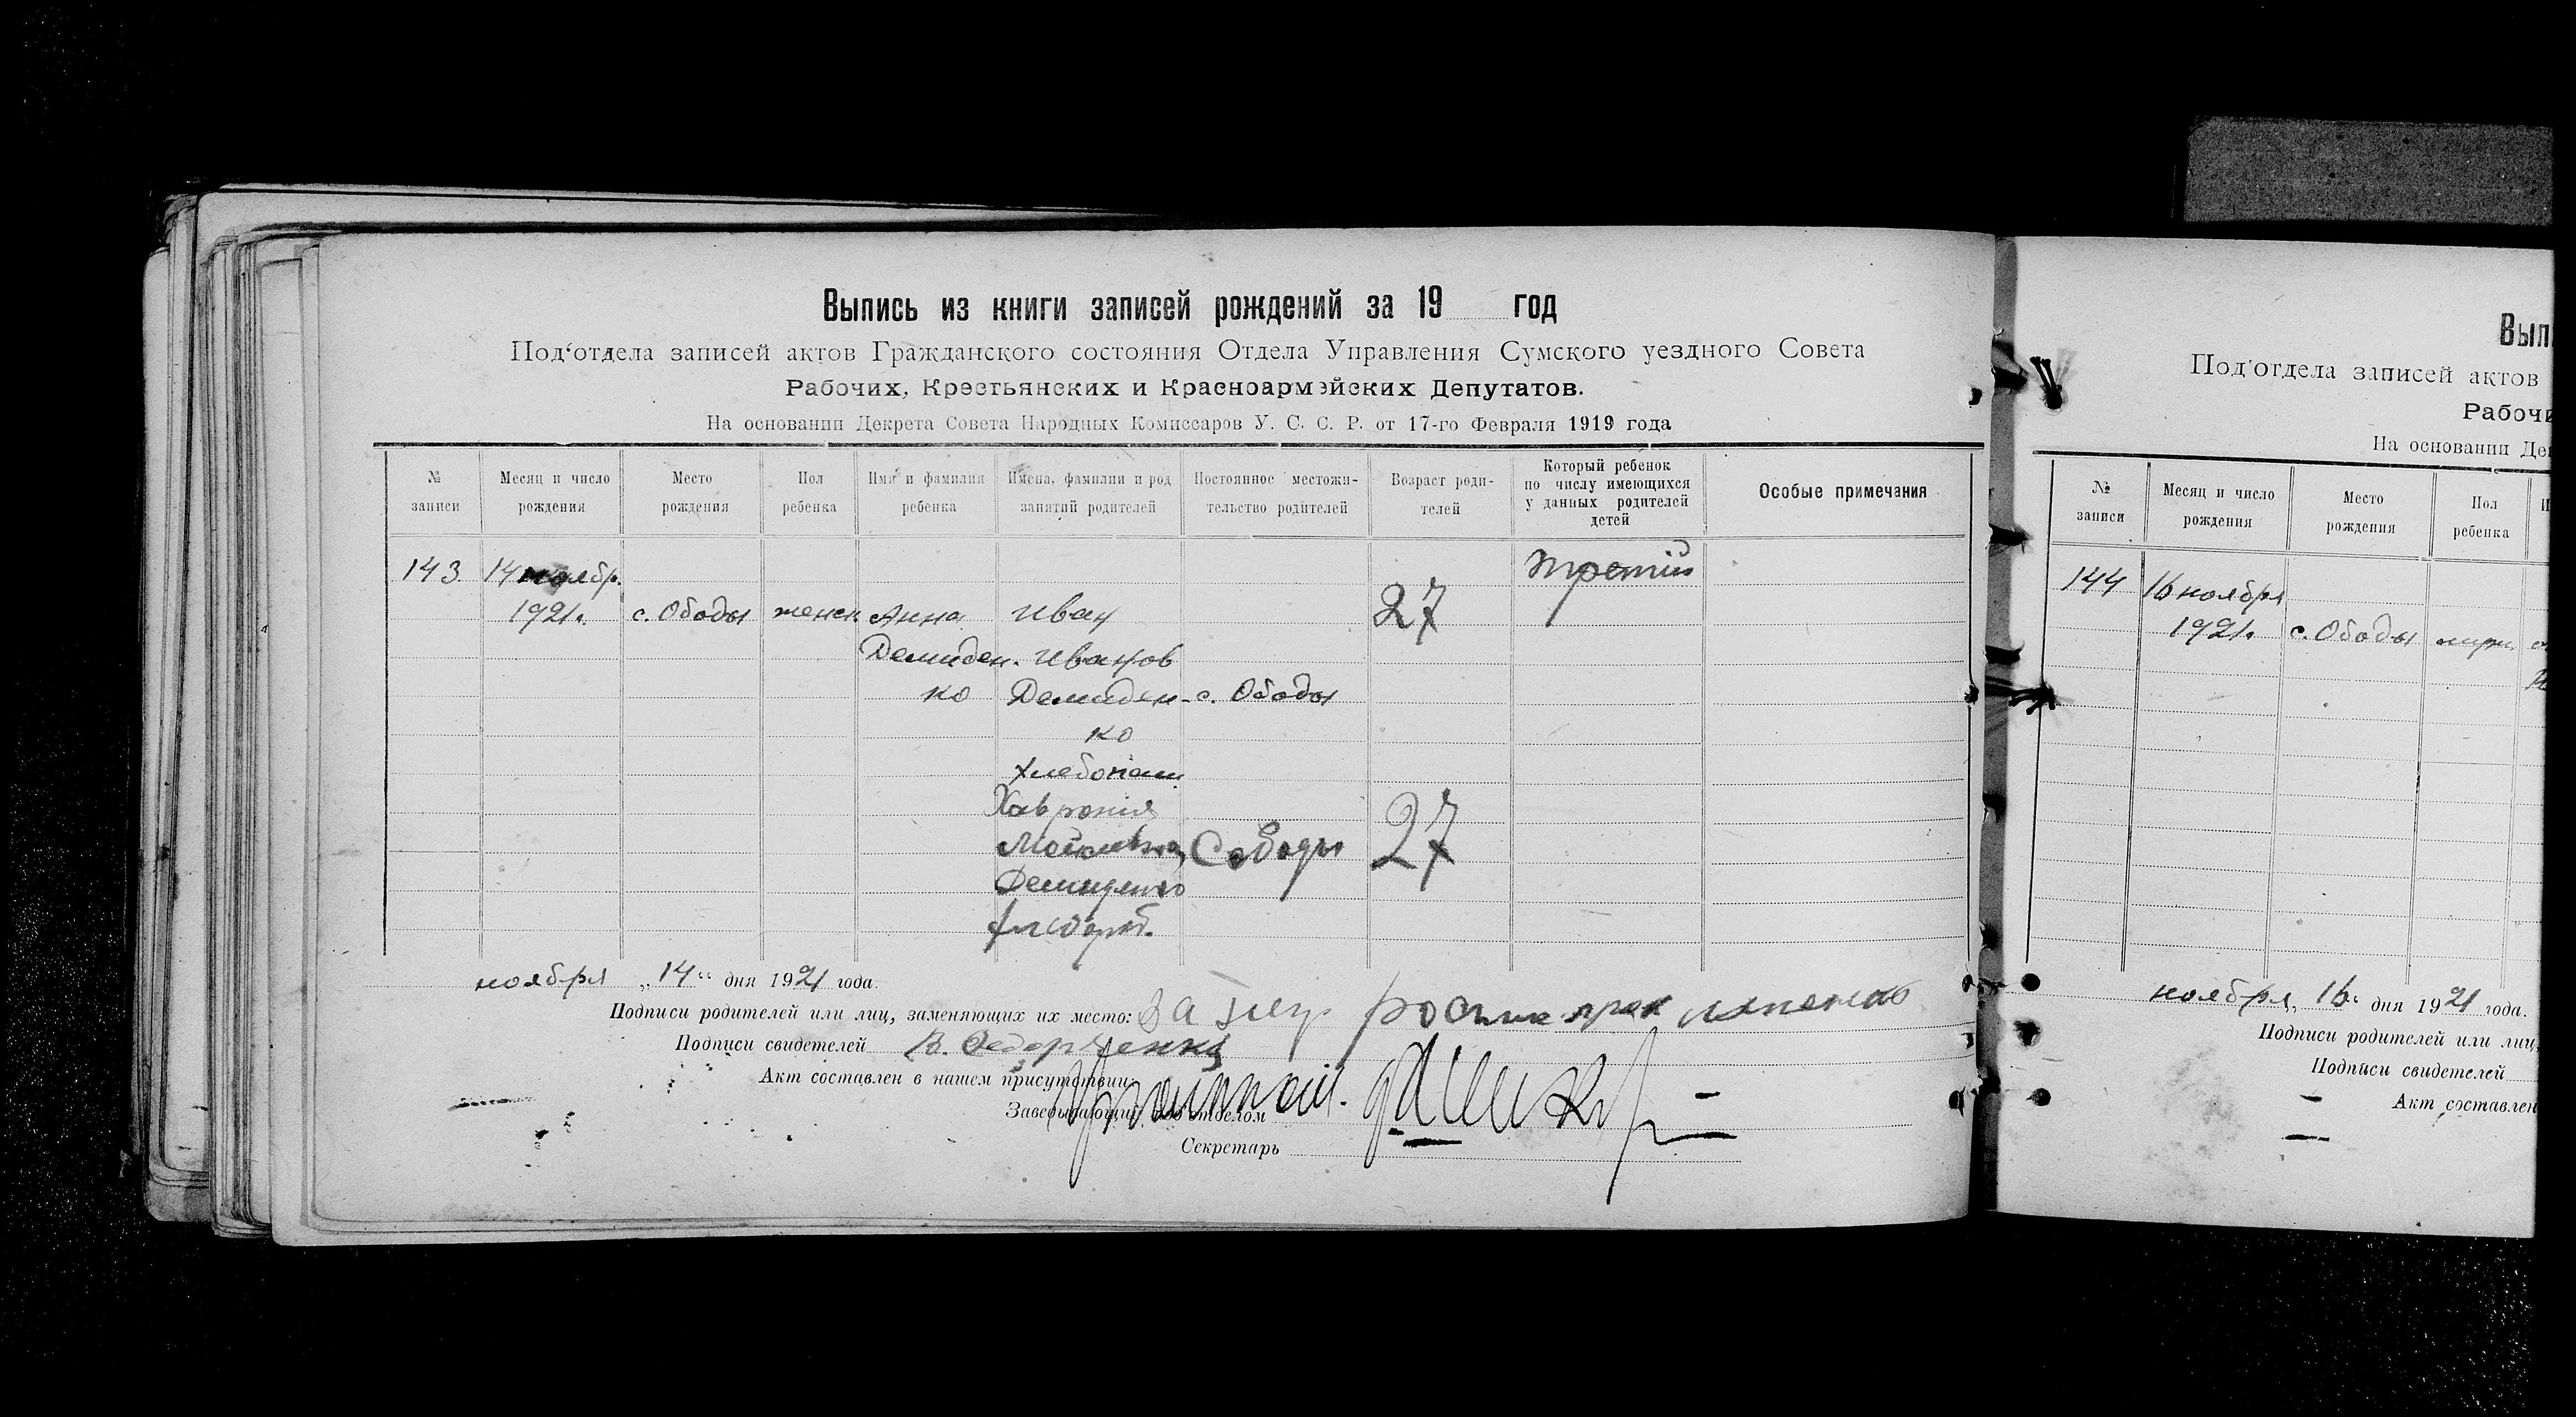 Выпись из книги записей рождений за 19 год
Под‘отдела записей актов Гражданского состояния Отдела Управления Сумского уездного Совета
Рабочих, Крестьянских и Красноармэйских Депутатов.
На основании Декрета Совета Народных Комиссаров У. С. С. Р. от 17-го Февраля 1919 года
№ записи
Месяц и число рождения
Место рождения
Пол ребенка
Имя и фамилия ребенка
Имена, фамилии и род занятий родителей
Постоянное местожи-
тельство родителей
Возраст роди-
телей
Который ребенок
по числу имеющихся
у данных родителей
детей
Особые примечания
143 14 ноябр. третий
1921г. с. Ободы женск Анна Иван 27
Демиден. Иванов
ко Демиден- с. Ободы
ко
хлебопаш.
Хаврония
27
Демиденко
ноября „14“ дня 1921 года.
Подписи родителей или лиц, заменяющих их место: За
Подписи свидетелей В. Федорченко
Акт составлен в нашем присутствии:
Заведывающий под‘отделом
Секретарь
Вып
Под‘отдела записей актов
Рабочи
На основании Де
№ записи
Месяц и число рождения
Место рождения
Пол ребенка
144 16 ноября
1921г. с. Ободы
ноября „16“ дня 1921 года.
Подписи родителей или лиц,
Подписи свидетелей
Акт составлен